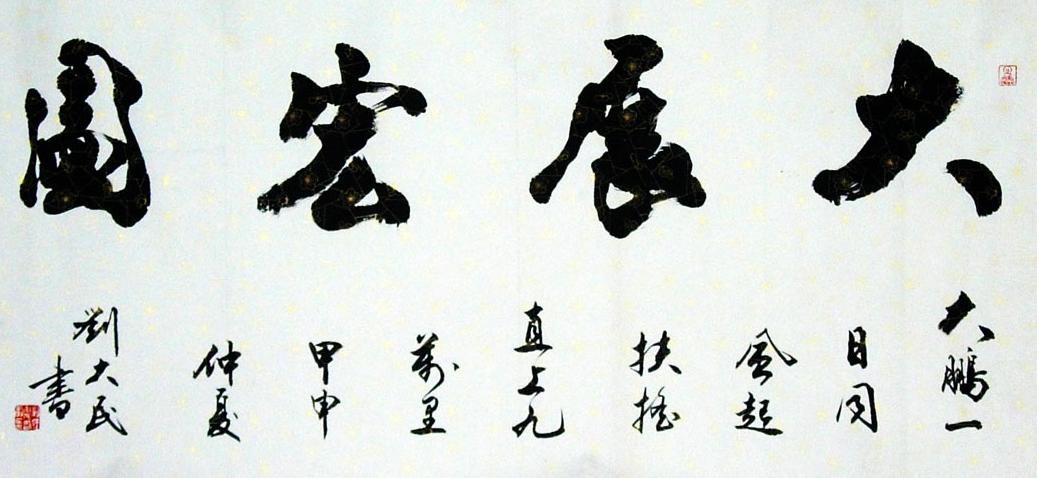 大展宏圖
大鵬一
日同
風起
扶搖
直上九
萬里
甲申
仲夏
劉大民
書